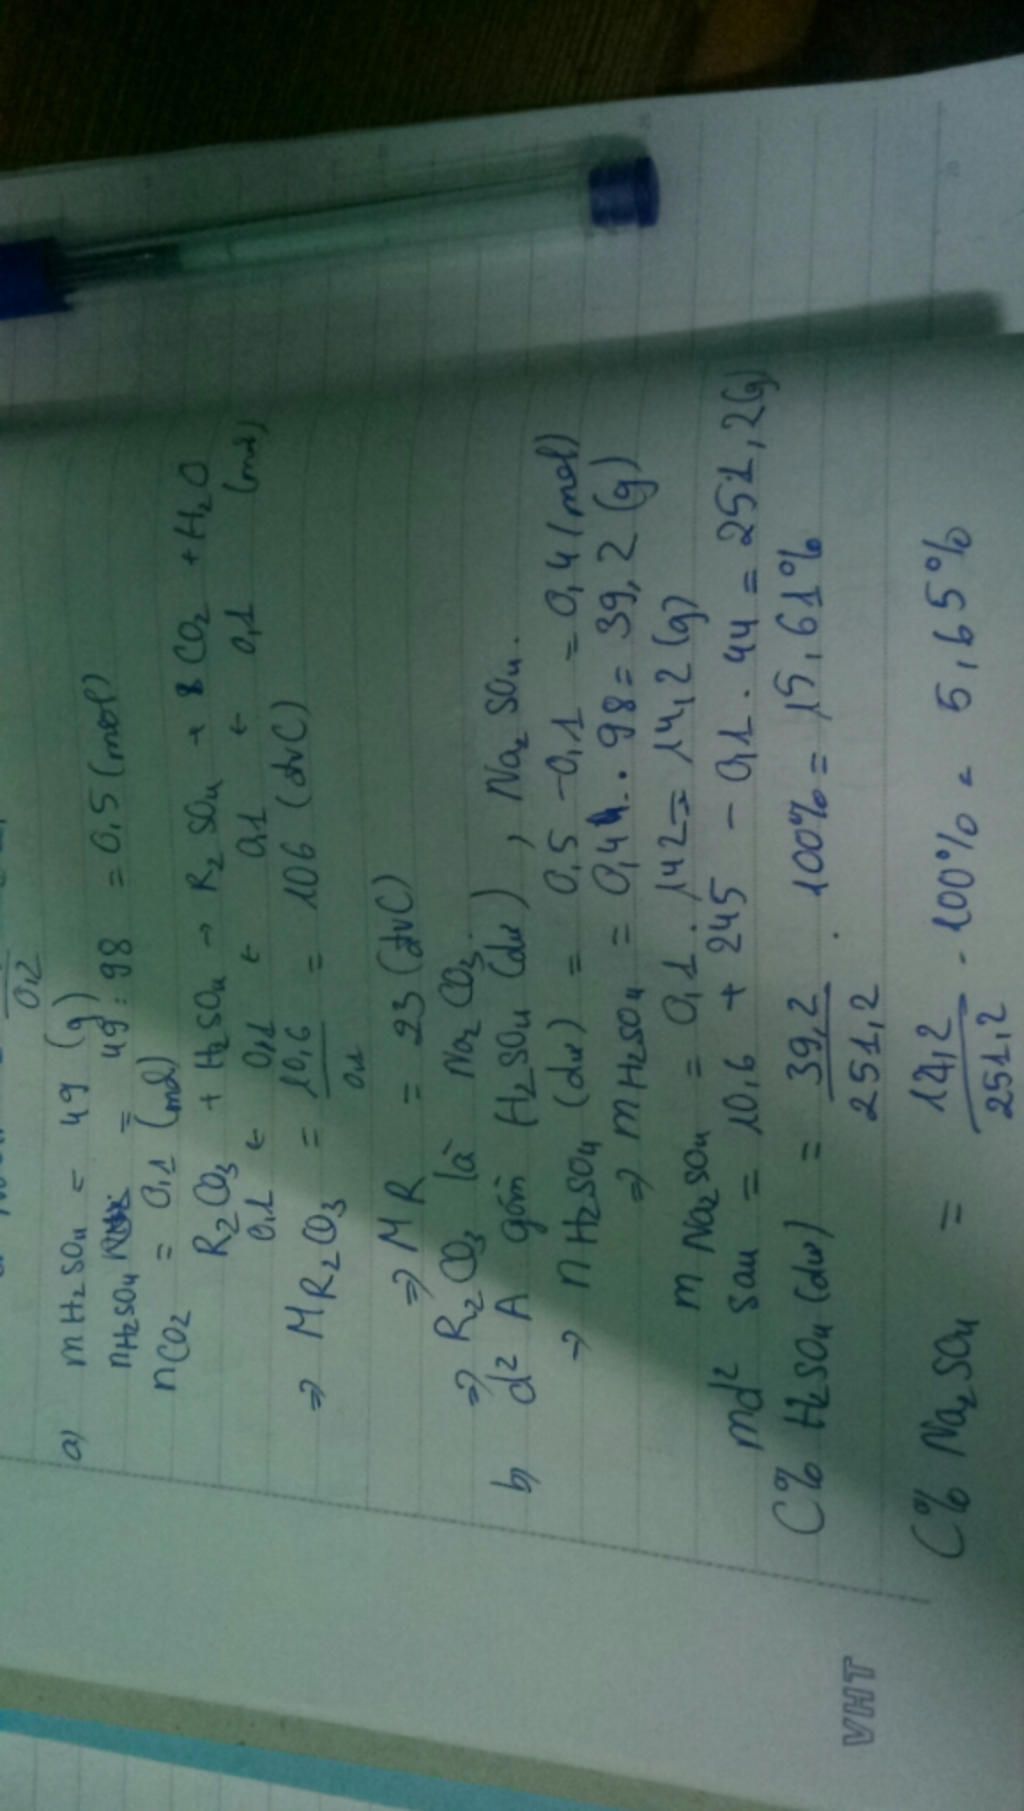 0,2
a) mH2SO4 = 49 (g)
nH2SO4 = 49 : 98 = 0,5 (mol)
nCO2 = 0,1 (mol)
R2CO3 + H2SO4 → R2SO4 + CO2 + H2O
0,1 ← 0,1 ← 0,1 ← 0,1 (mol)
⇒ MR2CO3 = 10,6 / 0,1 = 106 (đvC)
⇒ MR = 23 (đvC)
⇒ R2CO3 là Na2CO3.
b) d² A gồm H2SO4 (dư), Na2SO4.
⇒ nH2SO4 (dư) = 0,5 - 0,1 = 0,4 (mol)
⇒ mH2SO4 = 0,4 . 98 = 39,2 (g)
mNa2SO4 = 0,1 . 142 = 14,2 (g)
md² sau = 10,6 + 245 - 0,1 . 44 = 251,2 (g)
C% H2SO4 (dư) = 39,2 / 251,2 . 100% = 15,61%
C% Na2SO4 = 14,2 / 251,2 . 100% = 5,65%
VHT